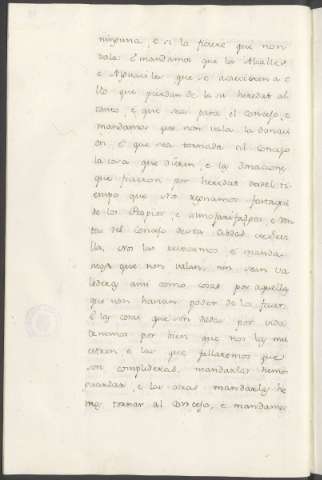 ninguna, e si la ficiere que non
vala. E mandamos que los Alcalles
e Alguacil que se acaecieren a e
llo que puedan de la su heredat al
tanto, e que sea para el concejo, e
mandamos que non vala la donaci
on, e que sea tornada al Concejo
la cosa que dieren, e las donaciones
que ficieron por heredat desdel ti
empo que Nos regnamos fasta aqui
de los Propios, e
tas del Concejo desta Cibdad
lla, Nos las revocamos, e manda
mos que non valan, nin sean va
lederas asi como cosas por aquellos
que non havian poder de lo facer.
E las cosas que son dadas por vida
tenemos por bien que nos las mu
estren e las que fallaremos que
son complideras, mandarlas hemos
guardar, e las otras mandarlas he
mos tornar al Concejo, e mandamos